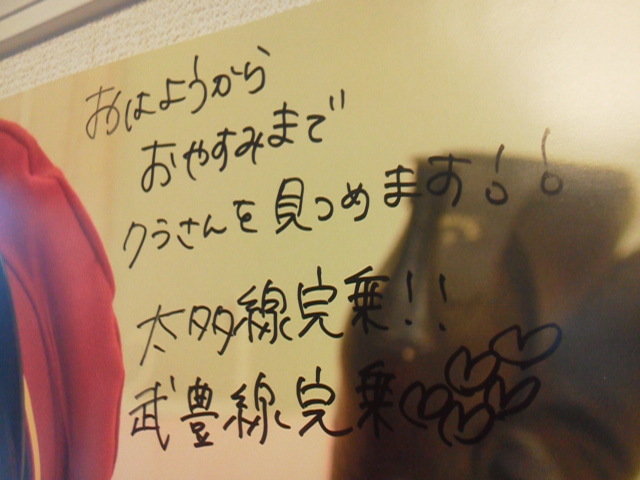 おはようから
おやすみまで
クラさんを見つめます!!
太多線完乗!!
武豊線完乗♡♡♡♡♡